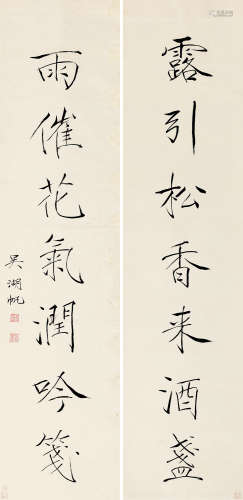 露引松香来酒盏
雨催花氣潤吟箋
吳湖帆